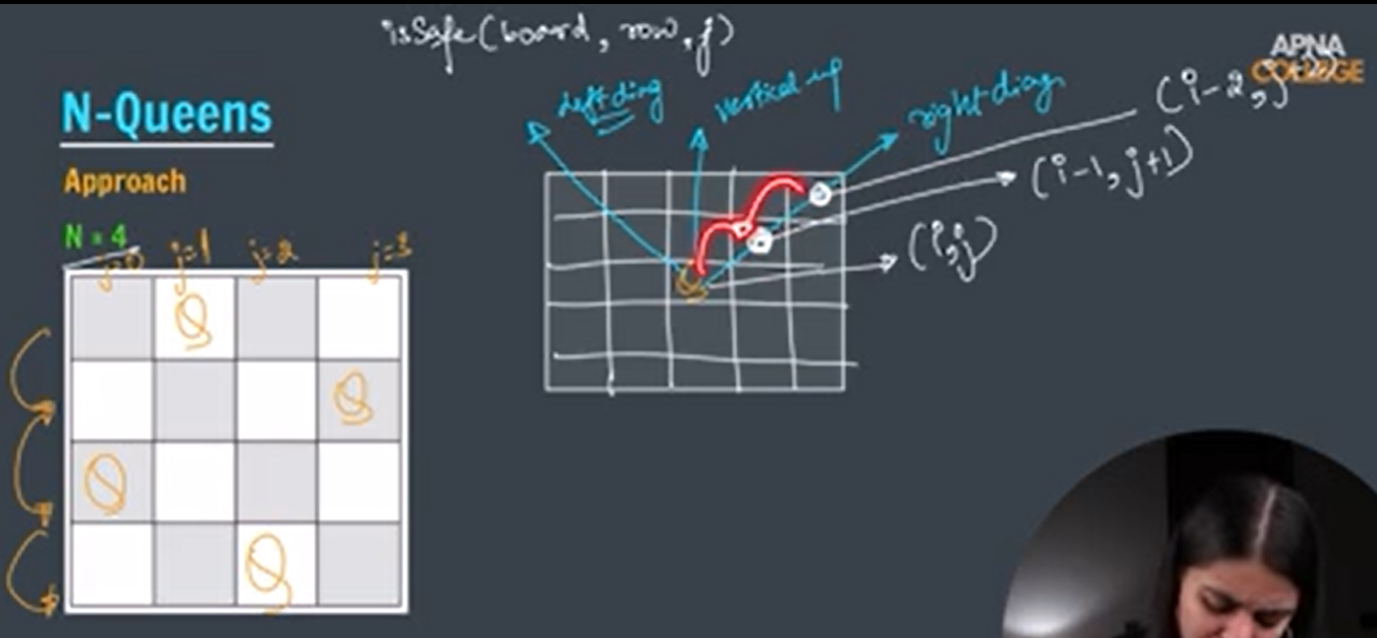 isSafe(board, row, j)
APNA
COLLEGE
N-Queens
Approach
N = 4
j=0 j=1 j=2 j=3
Q
Q
Q
Q
left diag
vertical up
right diag
(i-2, j+2)
(i-1, j+1)
(i, j)
Q